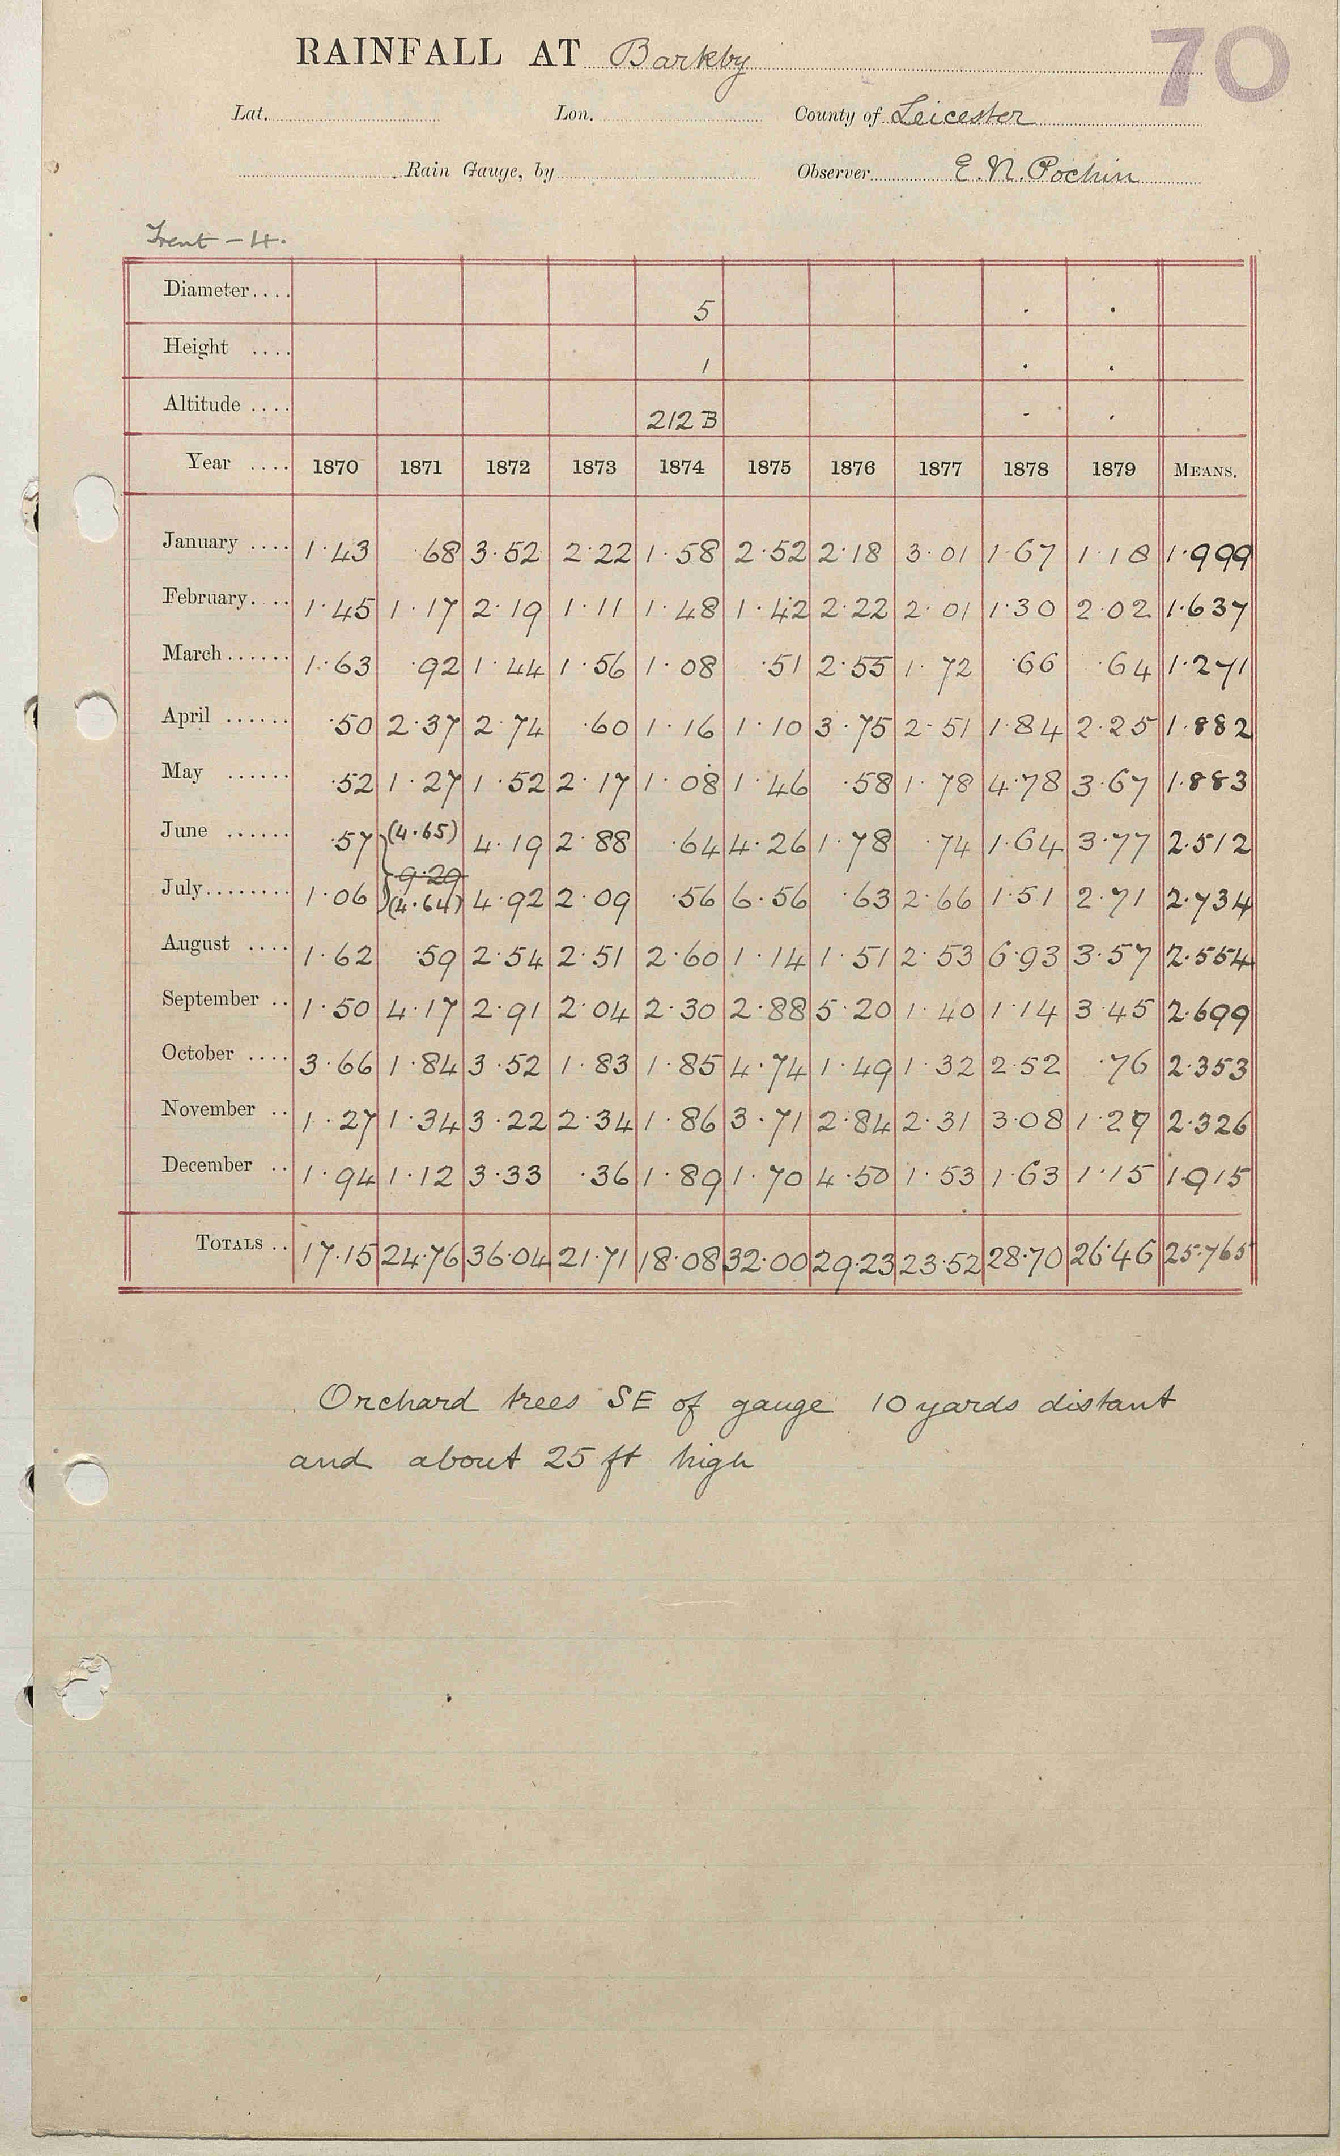 70
RAINFALL AT Barkby
Lat. Lon. County of Leicester
Rain Gauge, by Observer E.N. Pochin
Trent - 4.
Diameter.... 5 . .
Height .... 1 . .
Altitude .... 212 B . .
Year .... 1870 1871 1872 1873 1874 1875 1876 1877 1878 1879 MEANS.
January .... 1.43 .68 3.52 2.22 1.58 2.52 2.18 3.01 1.67 1.18 1.999
February.... 1.45 1.17 2.19 1.11 1.48 1.42 2.22 2.01 1.30 2.02 1.637
March...... 1.63 .92 1.44 1.56 1.08 .51 2.55 1.72 .66 .64 1.271
April ...... .50 2.37 2.74 .60 1.16 1.10 3.75 2.51 1.84 2.25 1.882
May ...... .52 1.27 1.52 2.17 1.08 1.46 .58 1.78 4.78 3.67 1.883
June ...... .57 (4.65) 4.19 2.88 .64 4.26 1.78 .74 1.64 3.77 2.512
9.29
July........ 1.06 (4.64) 4.92 2.09 .56 6.56 .63 2.66 1.51 2.71 2.734
August .... 1.62 .59 2.54 2.51 2.60 1.14 1.51 2.53 6.93 3.57 2.554
September .. 1.50 4.17 2.91 2.04 2.30 2.88 5.20 1.40 1.14 3.45 2.699
October .... 3.66 1.84 3.52 1.83 1.85 4.74 1.49 1.32 2.52 .76 2.353
November .. 1.27 1.34 3.22 2.34 1.86 3.71 2.84 2.31 3.08 1.29 2.326
December .. 1.94 1.12 3.33 .36 1.89 1.70 4.50 1.53 1.63 1.15 1.915
TOTALS .. 17.15 24.76 36.04 21.71 18.08 32.00 29.23 23.52 28.70 26.46 25.765
Orchard trees SE of gauge 10 yards distant
and about 25 ft high